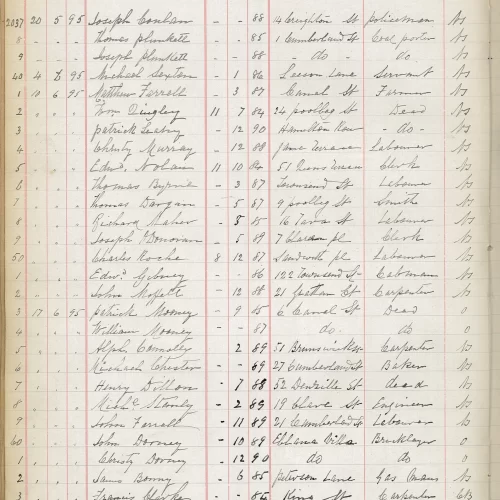 2037 20 5 95 Joseph Conlan - - 88 14 Creighton St policeman Ns
8 " " " Thomas plunkett - - 85 1 Cumberland St Coal porter Ns
9 - " " Joseph plunkett - - 88 - do - do. Ns
40 4 6 95 Michael Sexton - 1 86 Lane Servant Ns
1 11 6 95 Matthew Farrell - 3 87 Canal St Farmer Ns
2 " " " 11 7 84 24 poolbeg St Dead Ns
3 " " " patrick - 12 90 Hamilton Row - do - Ns
4 " " " Christy Murray - 12 88 Terrace Labourer Ns
5 " " " Edwd. Nolan 11 10 84 51 Terrace Clerk Ns
6 " " " Thomas Byrne - 3 87 Townsend St Labourer Ns
7 " " " Thomas Dargan - 5 87 9 poolbeg St Smith Ns
8 " " " Richard Maher - 3 85 16 Tara St Labourer Ns
9 " " " Joseph O'Donovan - 5 89 7 pl Clerk Ns
50 " " " Charles Roche 8 12 87 Sandwith pl Labourer Ns
1 " " " Edwd. - - 86 122 Townsend St Cabman Ns
2 " " " John Moffett - 12 88 21 St Carpenter Ns
3 17 6 95 patrick Mooney - 9 85 6 Canal St Dead 0
4 " " " William Mooney - - 87 do. do 0
5 " " " Alph Connolly - 2 89 51 Brunswick St Carpenter Ns
6 " " " Michael Chester - - 89 27 Cumberland St Baker Ns
7 " " " Henry Dillon - 7 88 52 Denzille St dead Ns
8 " " " Michl. Stanly - 2 89 19 Clare St Engineer Ns
9 " " " John Farrell - 11 89 21 Cumberland St Labourer Ns
60 " " " John Downey - 10 89 Eblana Villa Bricklayer 0
1 " " " Christy Downey - 12 90 do do 0
2 " " " James - 6 85 peterson Lane Gas Ns
3 " " " Francis Clarke - - 86 King St Carpenter